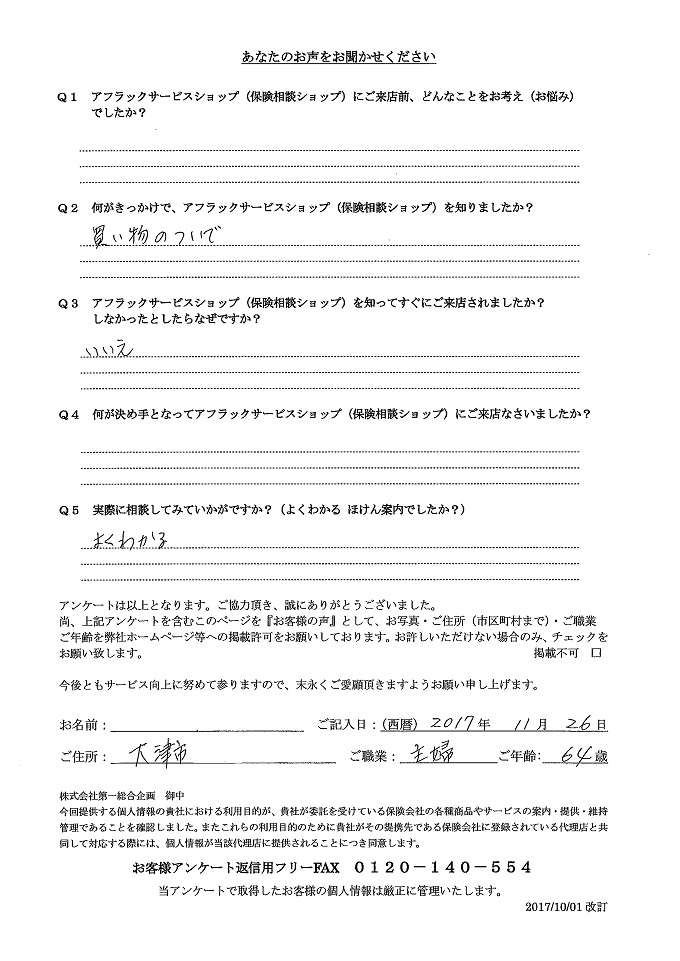 あなたのお声をお聞かせください
Q1 アフラックサービスショップ（保険相談ショップ）にご来店前、どんなことをお考え（お悩み）
でしたか？
Q2 何がきっかけで、アフラックサービスショップ（保険相談ショップ）を知りましたか？
買い物のついで
Q3 アフラックサービスショップ（保険相談ショップ）を知ってすぐにご来店されましたか？
しなかったとしたらなぜですか？
いいえ
Q4 何が決め手となってアフラックサービスショップ（保険相談ショップ）にご来店なさいましたか？
Q5 実際に相談してみていかがですか？（よくわかる ほけん案内でしたか？）
よくわかる
アンケートは以上となります。ご協力頂き、誠にありがとうございました。
尚、上記アンケートを含むこのページを『お客様の声』として、お写真・ご住所（市区町村まで）・ご職業
ご年齢を弊社ホームページ等への掲載許可をお願いしております。お許しいただけない場合のみ、チェックを
お願い致します。 掲載不可 □
今後ともサービス向上に努めて参りますので、末永くご愛顧頂きますようお願い申し上げます。
お名前： ご記入日：（西暦） 2017 年 11 月 26 日
ご住所： 大津市 ご職業： 主婦 ご年齢： 64 歳
株式会社第一総合企画 御中
今回提供する個人情報の貴社における利用目的が、貴社が委託を受けている保険会社の各種商品やサービスの案内・提供・維持
管理であることを確認しました。またこれらの利用目的のために貴社がその提携先である保険会社に登録されている代理店と共
同して対応する際には、個人情報が当該代理店に提供されることにつき同意します。
お客様アンケート返信用フリーFAX 0120－140－554
当アンケートで取得したお客様の個人情報は厳正に管理いたします。
2017/10/01 改訂